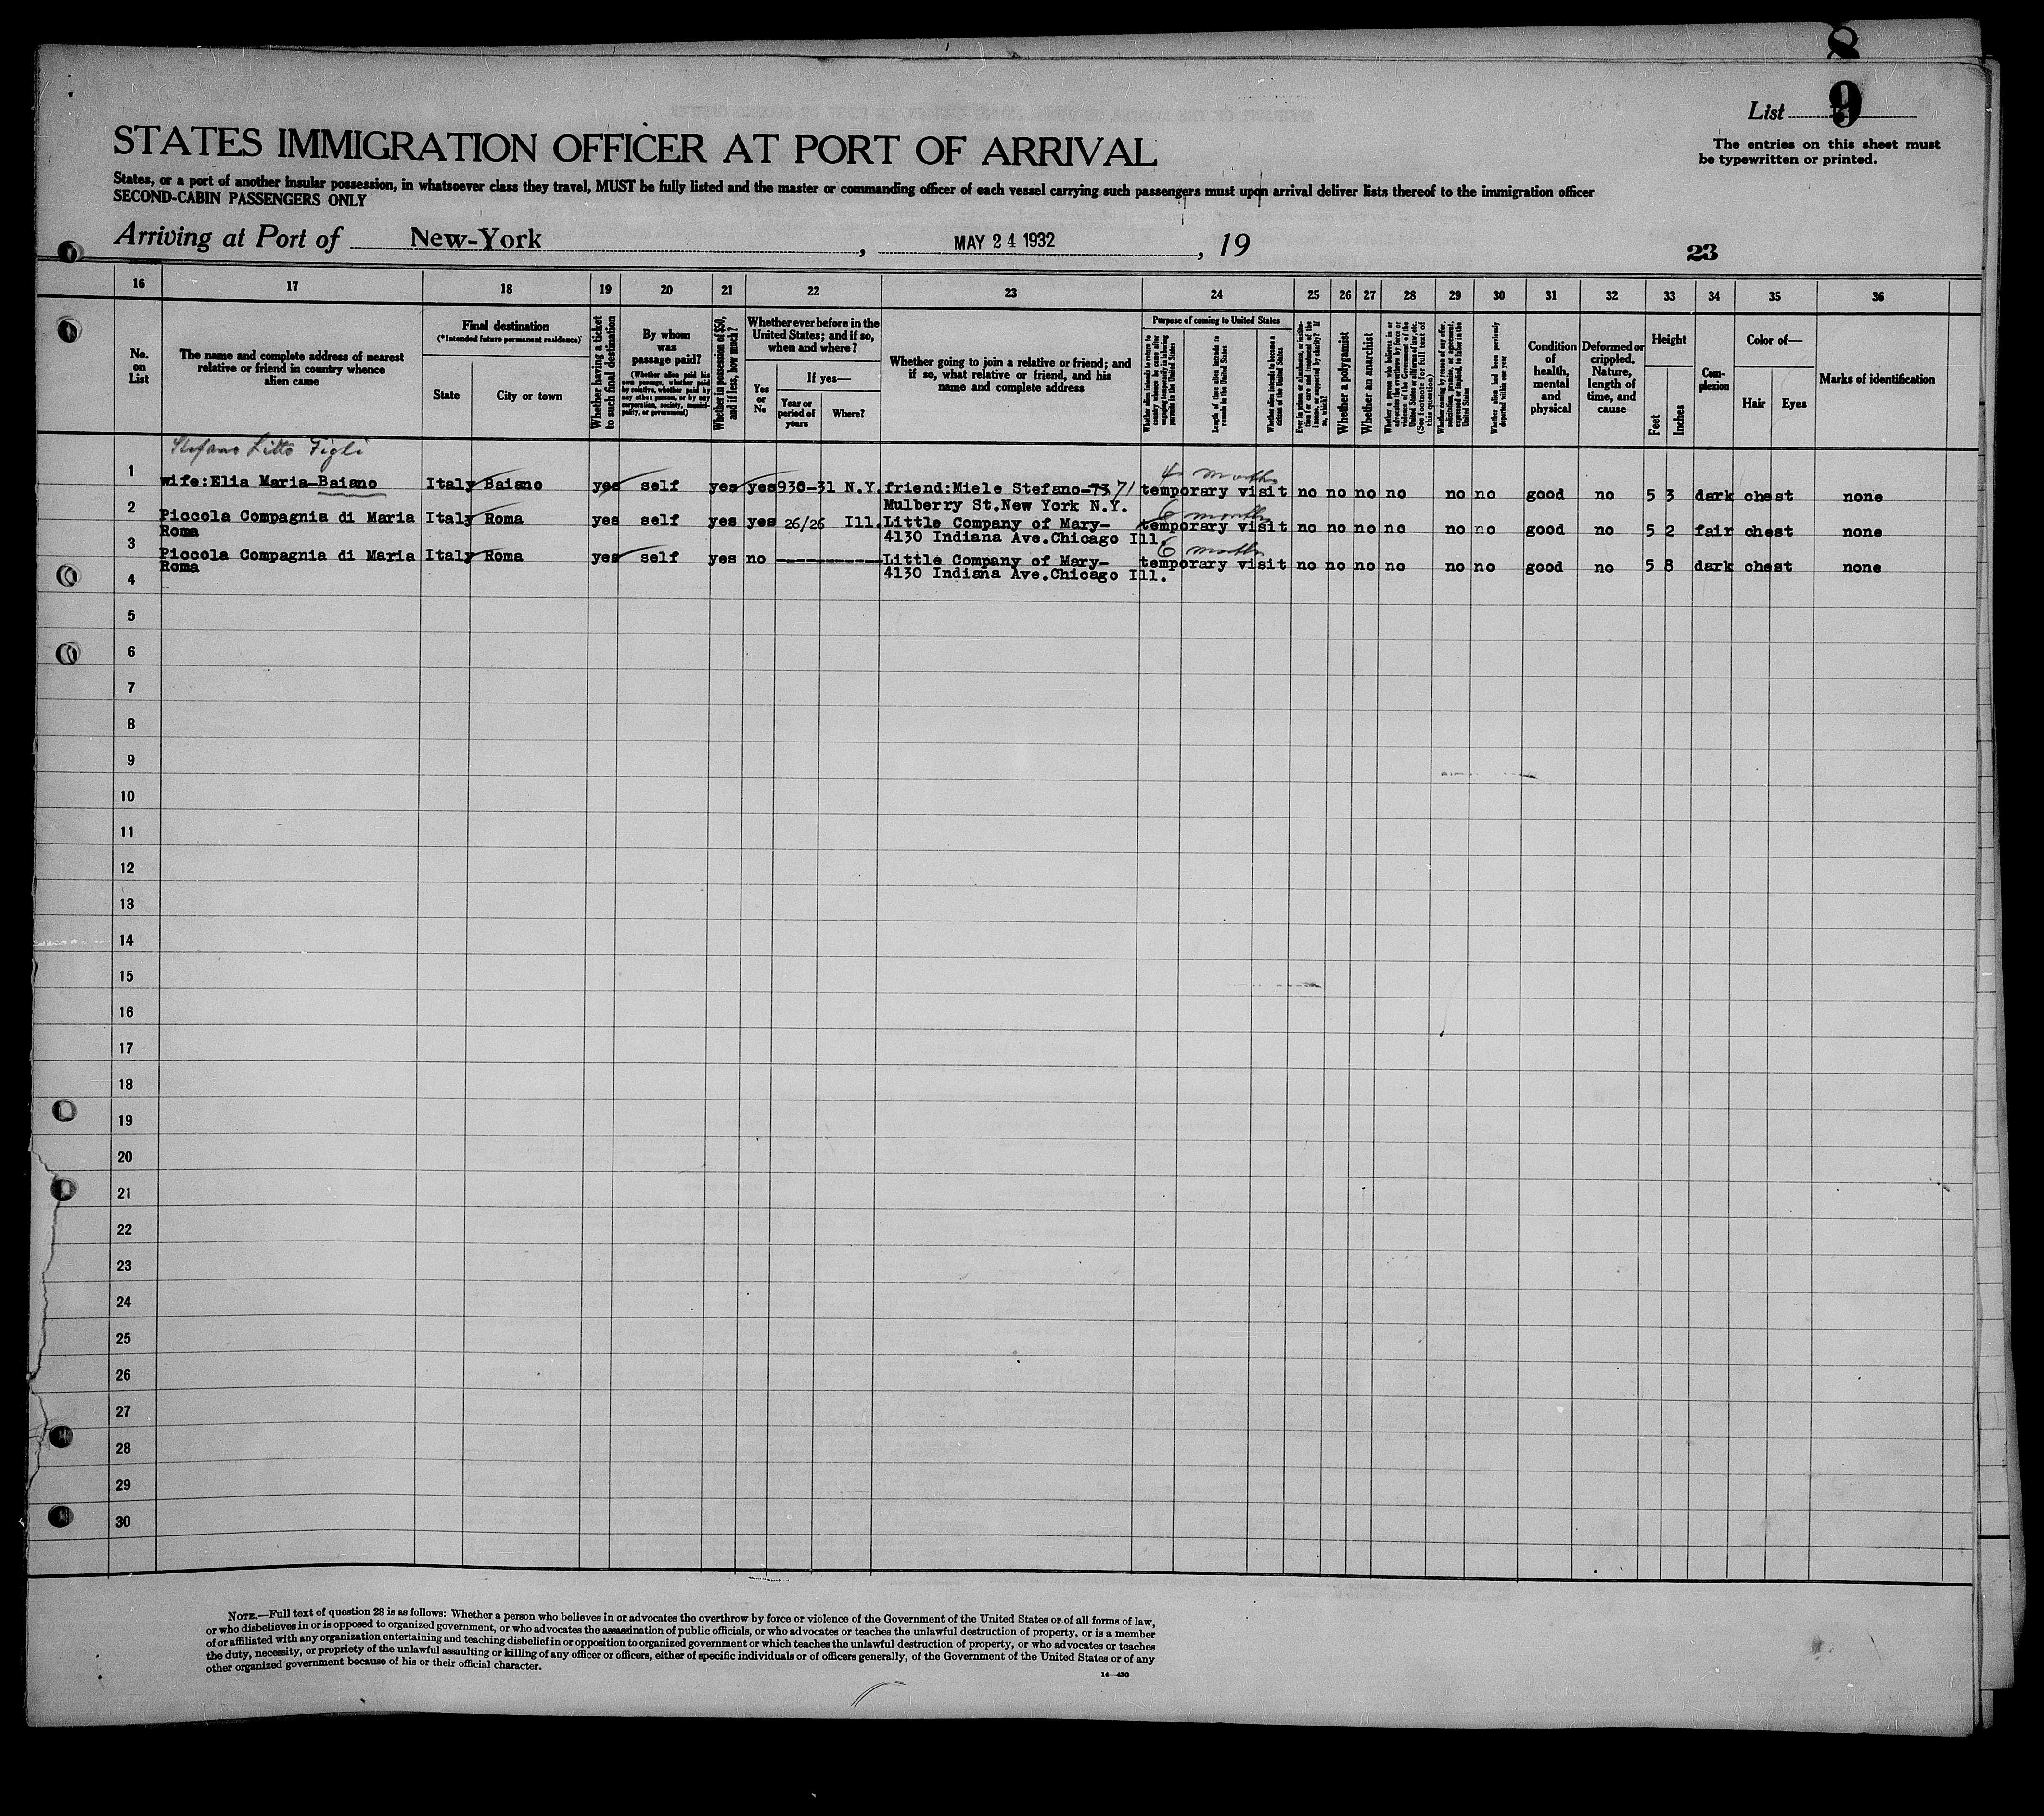 8
List 9
The entries on this sheet must
be typewritten or printed.
STATES IMMIGRATION OFFICER AT PORT OF ARRIVAL
States, or a port of another insular possession, in whatsoever class they travel, MUST be fully listed and the master or commanding officer of each vessel carrying such passengers must upon arrival deliver lists thereof to the immigration officer
SECOND-CABIN PASSENGERS ONLY
Arriving at Port of New-York, MAY 24 1932, 19
23
16 17 18 19 20 21 22 23 24 25 26 27 28 29 30 31 32 33 34 35 36
No. on List
The name and complete address of nearest
relative or friend in country whence
alien came
Final destination
(*Intended future permanent residence)
State
City or town
Whether having a ticket
to such final destination
By whom
was
passage paid?
(Whether alien paid his
own passage, whether paid
by relative, whether paid by
any other person, or by any
corporation, society, munici-
pality, or government)
Whether in possession of $50,
and if less, how much?
Whether ever before in the
United States; and if so,
when and where?
Yes
or
No
If yes—
Year or
period of
years
Where?
Whether going to join a relative or friend; and
if so, what relative or friend, and his
name and complete address
Purpose of coming to United States
Whether alien intends to return to
country whence he came after
engaging temporarily in laboring
pursuits in the United States
Length of time alien intends to
remain in the United States
Whether alien intends to become a
citizen of the United States
Ever in prison or almshouse, or institu-
tion for care and treatment of the
insane, or supported by charity? If
so, which?
Whether a polygamist
Whether an anarchist
Whether a person who believes in or
advocates the overthrow by force or
violence of the Government of the
United States or all forms of law, etc.
(See footnote for full text of
this question)
Whether coming by reason of any offer,
solicitation, promise, or agreement,
expressed or implied, to labor in the
United States
Whether alien had been previously
deported within one year
Condition
of
health,
mental
and
physical
Deformed or
crippled.
Nature,
length of
time, and
cause
Height
Feet
Inches
Com-
plexion
Color of—
Hair
Eyes
Marks of identification
Stefano Litto Figli
4 months
1 wife:Elia Maria-Baiano Italy Baiano yes self yes yes 930-31 N.Y. friend:Miele Stefano-73 71 temporary visit no no no no no no good no 5 3 dark chest none
Mulberry St.New York N.Y.
6 months
2 Piccola Compagnia di Maria Italy Roma yes self yes yes 26/26 Ill. Little Company of Mary- temporary visit no no no no no no good no 5 2 fair chest none
Roma 4130 Indiana Ave.Chicago Ill.
6 months
3 Piccola Compagnia di Maria Italy Roma yes self yes no ----------- Little Company of Mary- temporary visit no no no no no no good no 5 8 dark chest none
Roma 4130 Indiana Ave.Chicago Ill.
4
5
6
7
8
9
10
11
12
13
14
15
16
17
18
19
20
21
22
23
24
25
26
27
28
29
30
NOTE.—Full text of question 28 is as follows: Whether a person who believes in or advocates the overthrow by force or violence of the Government of the United States or of all forms of law,
or who disbelieves in or is opposed to organized government, or who advocates the assassination of public officials, or who advocates or teaches the unlawful destruction of property, or is a member
of or affiliated with any organization entertaining and teaching disbelief in or opposition to organized government or which teaches the unlawful destruction of property, or who advocates or teaches
the duty, necessity, or propriety of the unlawful assaulting or killing of any officer or officers, either of specific individuals or of officers generally, of the Government of the United States or of any
other organized government because of his or their official character.
14—430